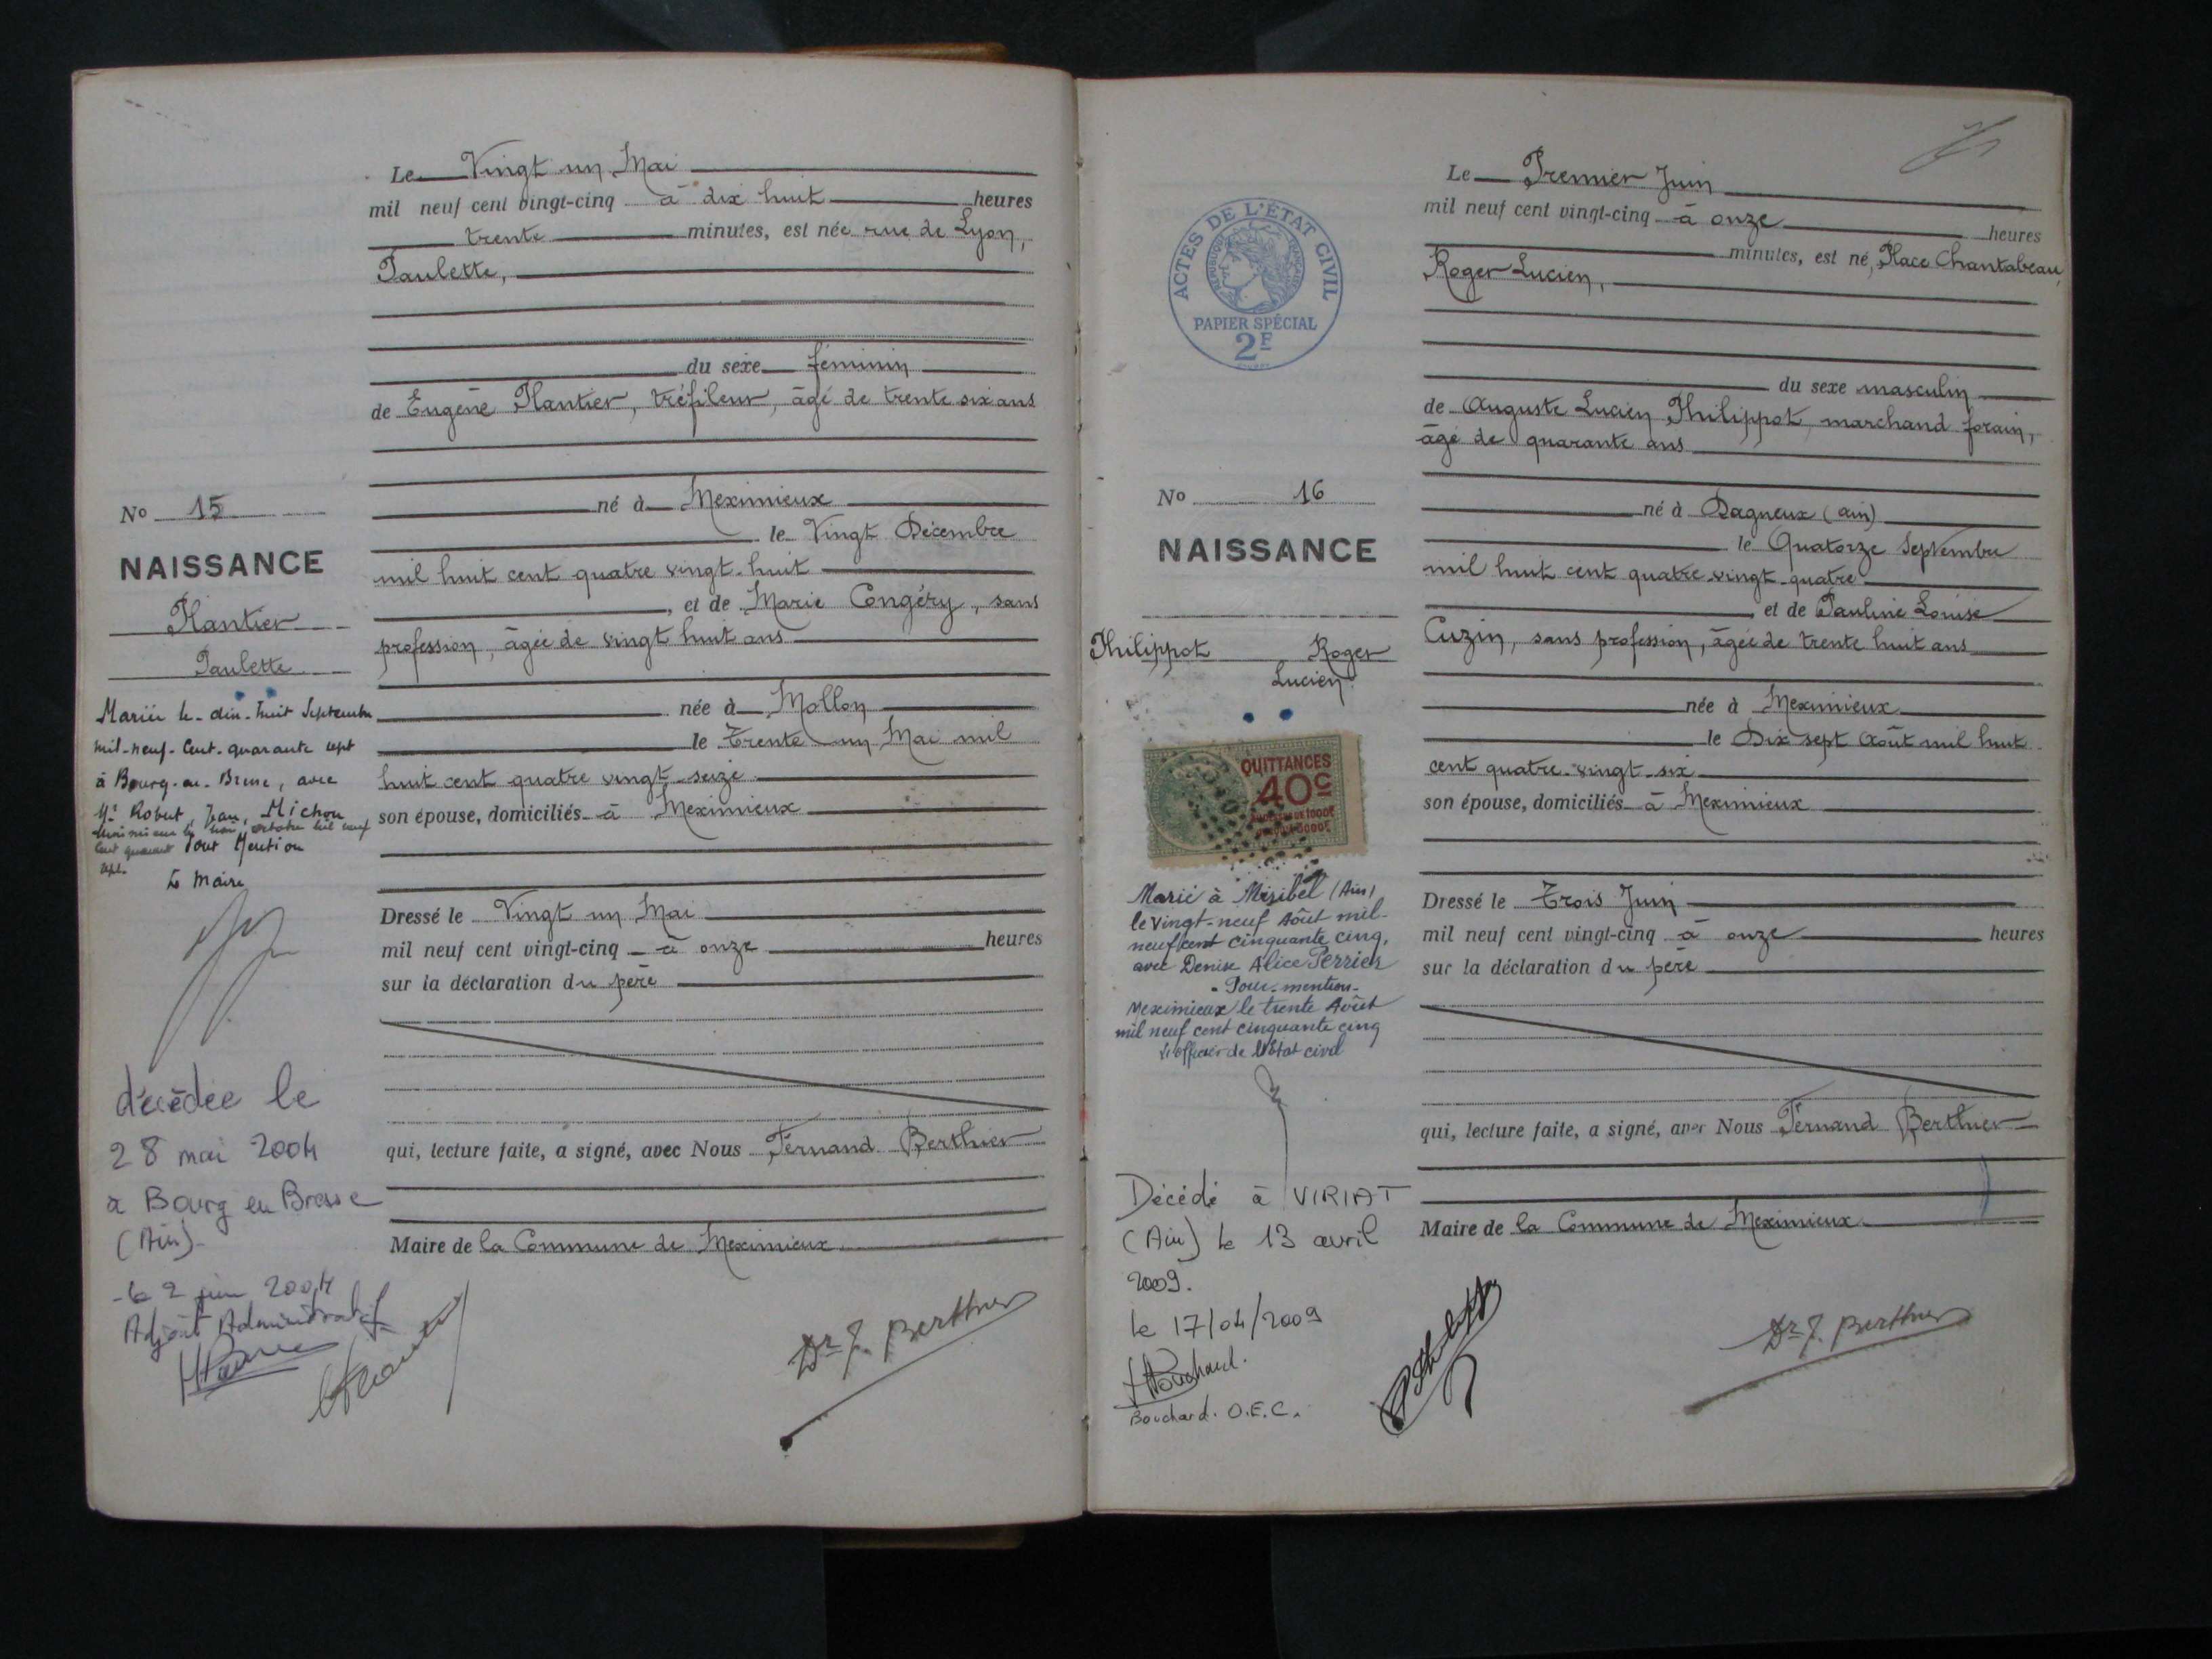 Le Vingt un Mai
mil neuf cent vingt-cinq à dix huit heures
trente minutes, est née rue de Lyon,
Paulette,
du sexe féminin
de Eugène Plantier, tréfileur, âgé de trente six ans
né à Meximieux
le Vingt Décembre
mil huit cent quatre vingt-huit
, et de Marie Congéry, sans
profession, âgée de vingt huit ans
née à Mollon
le trente un Mai mil
huit cent quatre vingt-seize
son épouse, domiciliés à Meximieux
Dressé le Vingt un Mai
mil neuf cent vingt-cinq à onze heures
sur la déclaration du père
qui, lecture faite, a signé, avec Nous Fernand Berthier
Maire de la Commune de Meximieux
Dr F. Berthier
No 15
NAISSANCE
Plantier
Paulette
Mariée le dix-huit Septembre
mil-neuf-Cent-quarante sept
à Bourg-en-Bresse, avec
Mr Robert, Jean, Michon
Meximieux le trois octobre mil neuf
Cent quarante Pour Mention
sept.
Le Maire
décédée le
28 mai 2004
à Bourg en Bresse
(Ain).
Le 2 juin 2004
Adjoint Administratif
Le Premier Juin
mil neuf cent vingt-cinq à onze heures
minutes, est né, Place Chantabeau,
Roger Lucien,
du sexe masculin
de Auguste Lucien Philippot, marchand forain,
âgé de quarante ans
né à Dagneux (Ain)
le Quatorze Septembre
mil huit cent quatre-vingt-quatre
et de Pauline Louise
Cuzin, sans profession, âgée de trente huit ans
née à Meximieux
le Dix sept Août mil huit
cent quatre-vingt-six
son épouse, domiciliés à Meximieux
Dressé le Trois Juin
mil neuf cent vingt-cinq à onze heures
sur la déclaration du père
qui, lecture faite, a signé, avec Nous Fernand Berthier
Maire de la Commune de Meximieux
Dr F. Berthier
ACTES DE L'ÉTAT CIVIL
RÉPUBLIQUE FRANÇAISE
PAPIER SPÉCIAL
2F
No 16
NAISSANCE
Philippot Roger
Lucien
QUITTANCES
40c
Marié à Miribel (Ain)
le vingt-neuf Août mil-
neuf cent cinquante cinq,
avec Denise Alice Perrier
Pour mention
Meximieux le trente Août
mil neuf cent cinquante cinq
L'officier de l'Etat civil
Décédé à VIRIAT
(Ain) le 13 avril
2009.
le 17/04/2009
Bouchard. O.E.C.